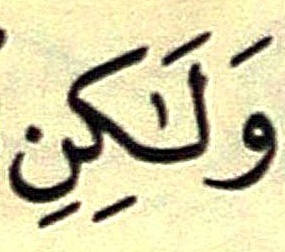 وَلَـٰكِنِ